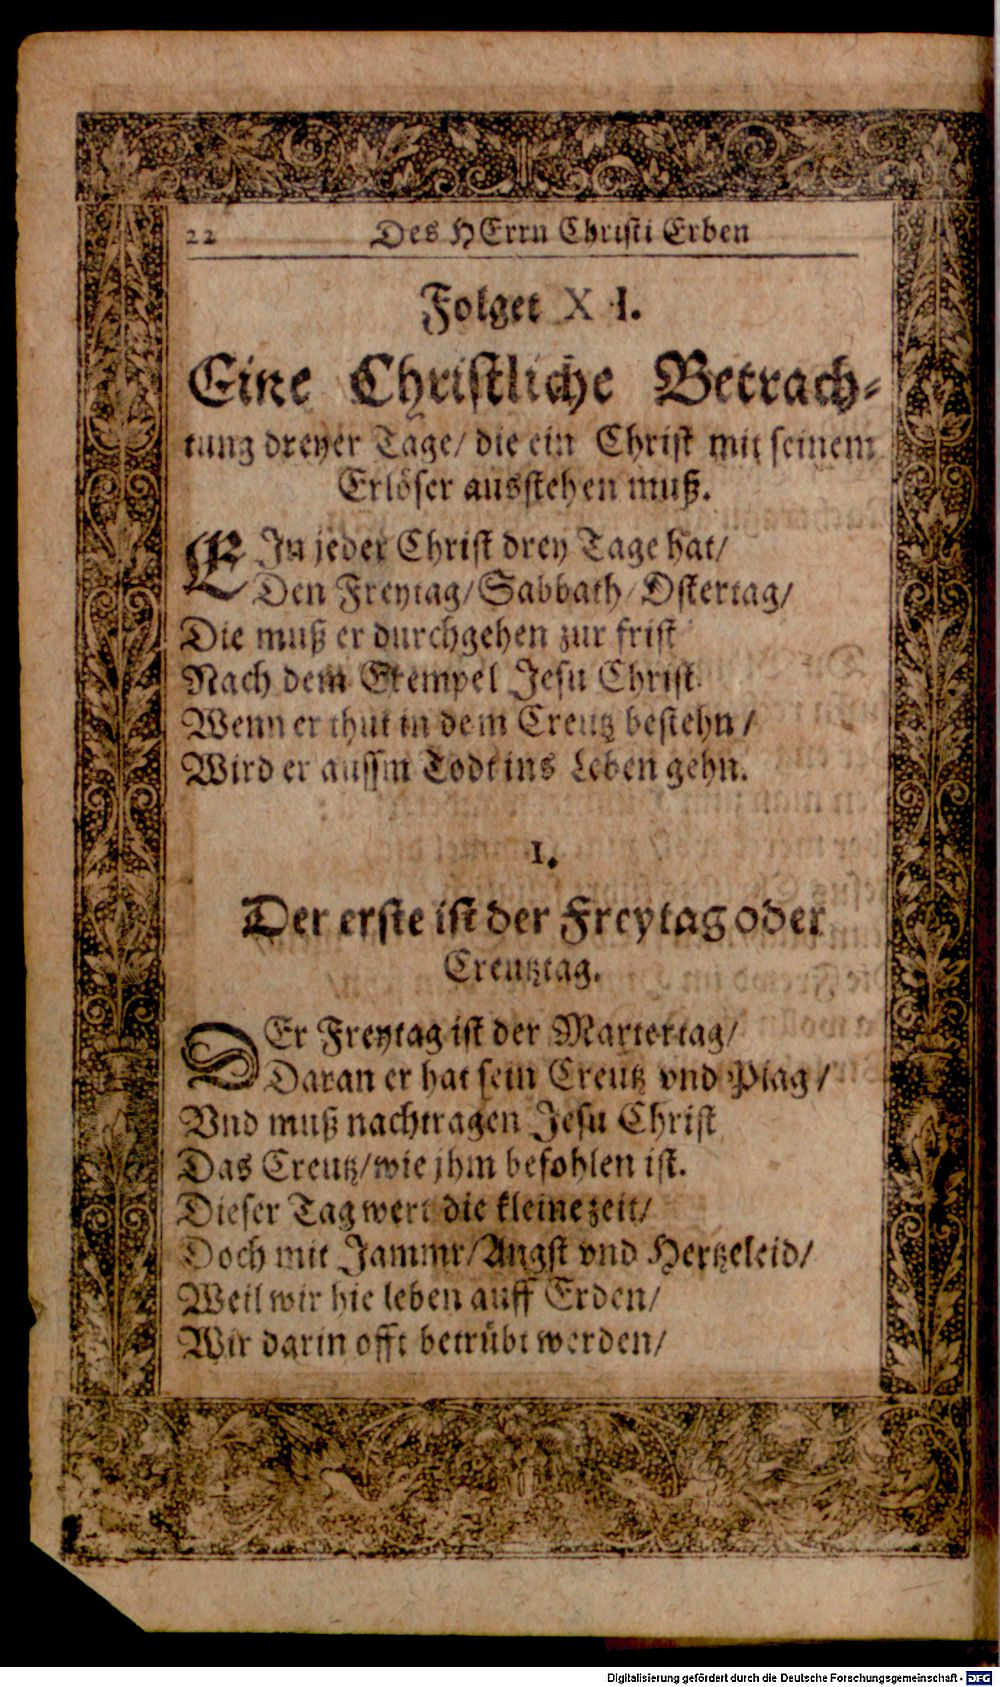 22 Des HErrn Christi Erben
Folget XI.
Eine Christliche Betrach-
tung dreyer Tage/ die ein Christ mit seinem
Erlöser ausstehen muß.
EIn jeder Christ drey Tage hat/
Den Freytag/ Sabbath/ Ostertag/
Die muß er durchgehen zur frist
Nach dem Exempel Jesu Christ.
Wenn er thut in dem Creutz bestehn/
Wird er aussm Todt ins Leben gehn.
1.
Der erste ist der Freytag oder
Creutztag.
DEr Freytag ist der Martertag/
Daran er hat sein Creutz vnd Plag/
Vnd muß nachtragen Jesu Christ
Das Creutz/ wie jhm befohlen ist.
Dieser Tag wert die kleine zeit/
Doch mit Jammr/ Angst vnd Hertzeleid/
Weil wir hie leben auff Erden/
Wir darin offt betrübt werden/
Digitalisierung gefördert durch die Deutsche Forschungsgemeinschaft - DFG